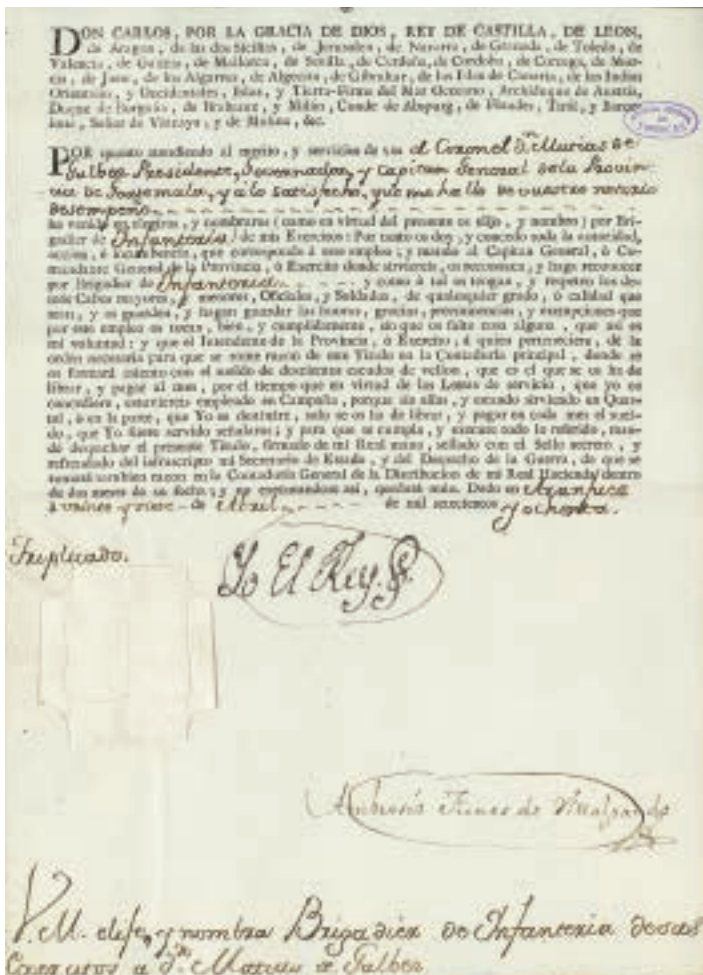 DON CARLOS, POR LA GRACIA DE DIOS, REY DE CASTILLA, DE LEON,
de Aragon, de las dos Sicilias, de Jerusalen, de Navarra, de Granada, de Toledo, de
Valencia, de Galicia, de Mallorca, de Sevilla, de Cerdeña, de Cordoba, de Corcega, de Mur-
cia, de Jaen, de los Algarves, de Algecira, de Gibraltar, de las Islas de Canaria, de las Indias
Orientales, y Occidentales, Islas, y Tierra-Firme del Mar Oceano, Archiduque de Austria,
Duque de Borgoña, de Brabante, y Milan, Conde de Abspurg, de Flandes, Tirol, y Barce-
lona, Señor de Vizcaya, y de Molina, &c.
POR quanto atendiendo al merito, y servicios de vos el Coronel Dn. Matias de
Galbez Presidente, Governador, y Capitan General de la Provin-
cia de Goatemala, y a lo satisfecho, que me hallo de vuestro notorio
desempeño
he venido en elegiros, y nombraros (como en virtud del presente os elijo, y nombro) por Bri-
gadier de Infanteria de mis Exercitos: Por tanto os doy, y concedo toda la autoridad,
accion, è incumbencia, que corresponde à este empleo; y mando al Capitan General, ò Co-
mandante General de la Provincia, ò Exercito donde sirviereis, os reconozca, y haga reconocer
por Brigadier de Infanteria y como à tal os tengan, y respeten los de-
más Cabos mayores, y menores, Oficiales, y Soldados, de qualesquier grado, ò calidad que
sean, y os guarden, y hagan guardar las honras, gracias, preeminencias, y exempciones que
por este empleo os tocan, bien, y cumplidamente, sin que os falte cosa alguna, que asi es
mi voluntad: y que el Intendente de la Provincia, ò Exercito, à quien perteneciere, dé la
orden necesaria para que se tome razon de este Titulo en la Contaduría principal, donde se
os formará asiento con el sueldo de doscientos escudos de vellon, que es el que se os ha de
librar, y pagar al mes, por el tiempo que en virtud de las Letras de servicio, que yo os
concediere, estuviereis empleado en Campaña, porque sin ellas, y estando sirviendo en Quar-
tel, ò en la parte, que Yo os destinare, solo se os ha de librar, y pagar en cada mes el suel-
do, que Yo fuere servido señalaros; y para que se cumpla, y execute todo lo referido, man-
dé despachar el presente Titulo, firmado de mi Real mano, sellado con el Sello secreto, y
refrendado del infrascripto mi Secretario de Estado, y del Despacho de la Guerra, de que se
tomará tambien razon en la Contaduría General de la Distribucion de mi Real Hacienda dentro
de dos meses de su fecha; y no executandose asi, quedará nulo. Dado en Aranjuez
à veinte y nueve de Abril de mil setecientos y ochenta.
Triplicado.
Yo El Rey.
Ambrosio Funes de Villalpando
V.M. elije, y nombra Brigadier de Infanteria de sus
Exercitos a Dn. Matias de Galbez